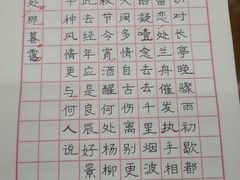 对长亭晚骤雨初歇都
恋处兰舟催发执手相
凝噎念去去千里烟波
阔多情自古伤离别更
节今宵酒醒何处杨柳
此去经年应是良辰好景
千种风情更与何人说
处那暮霭